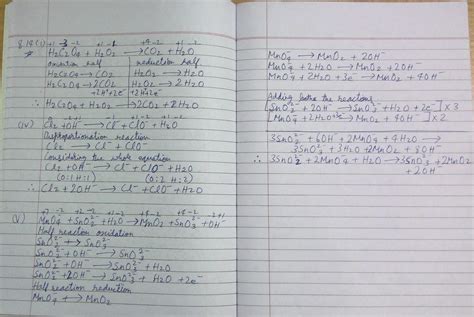 8.19 (i) +1 +3 -2 +1 -1 +4 -2 +1 -2
* H2C2O4 + H2O2 → CO2 + H2O
oxidation half reduction half
H2C2O4 → CO2 H2O2 → H2O
H2C2O4 → 2CO2 H2O2 → 2H2O
+2H+ +2e- +2H+ +2e-
∴ H2C2O4 + H2O2 → 2CO2 + 2H2O
(iv) Cl2 + OH- → Cl- + ClO- + H2O
Disproportionation reaction
Cl2 → Cl- + ClO-
Considering the whole equation
Cl2 + OH- → Cl- + ClO- + H2O
(O:1 H:1) (O:2 H:2)
∴ Cl2 + 2OH- → Cl- + ClO- + H2O
(v)
MnO4- + SnO2²- + H2O → MnO2 + SnO3²- + OH-
Half reaction oxidation
SnO2²- → SnO3²-
SnO2²- + OH- → SnO3²-
SnO2²- + OH- → SnO3²- + H2O
SnO2²- + 2OH- → SnO3²- + H2O + 2e-
Half reaction reduction
MnO4- → MnO2
MnO4- → MnO2 + 2OH-
MnO4- + 2H2O → MnO2 + 2OH-
MnO4- + 2H2O + 3e- → MnO2 + 4OH-
Adding both the reactions
[SnO2²- + 2OH- → SnO3²- + H2O + 2e-] × 3
[MnO4- + 2H2O + 3e- → MnO2 + 4OH-] × 2
3SnO2²- + 6OH- + 2MnO4- + 4H2O →
3SnO3²- + 3H2O + 2MnO2 + 8OH-
∴ 3SnO2²- + 2MnO4- + H2O → 3SnO3²- + 2MnO2
+ 2OH-